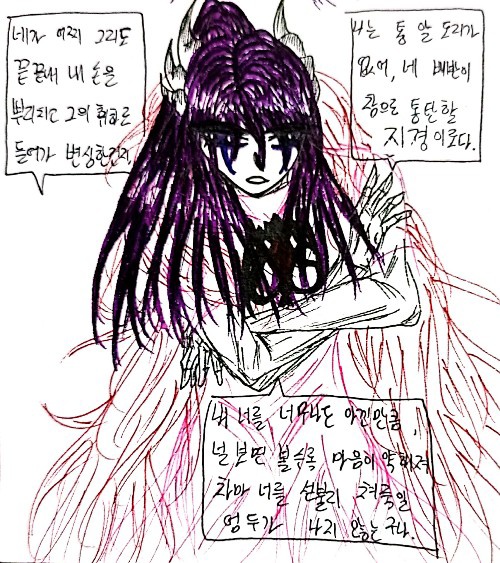 네가 어찌 그리도
끝끝내 내 손을
뿌리치고 그의 휘하로
들어가 변심한건지
나는 통 알 도리가
없어, 네 배반이
참으로 통탄할
지경이로다.
내 너를 너무나도 아낀만큼,
널 보면 볼수록 마음이 약해져
차마 너를 섣불리 쳐죽일
엄두가 나지 않는구나.